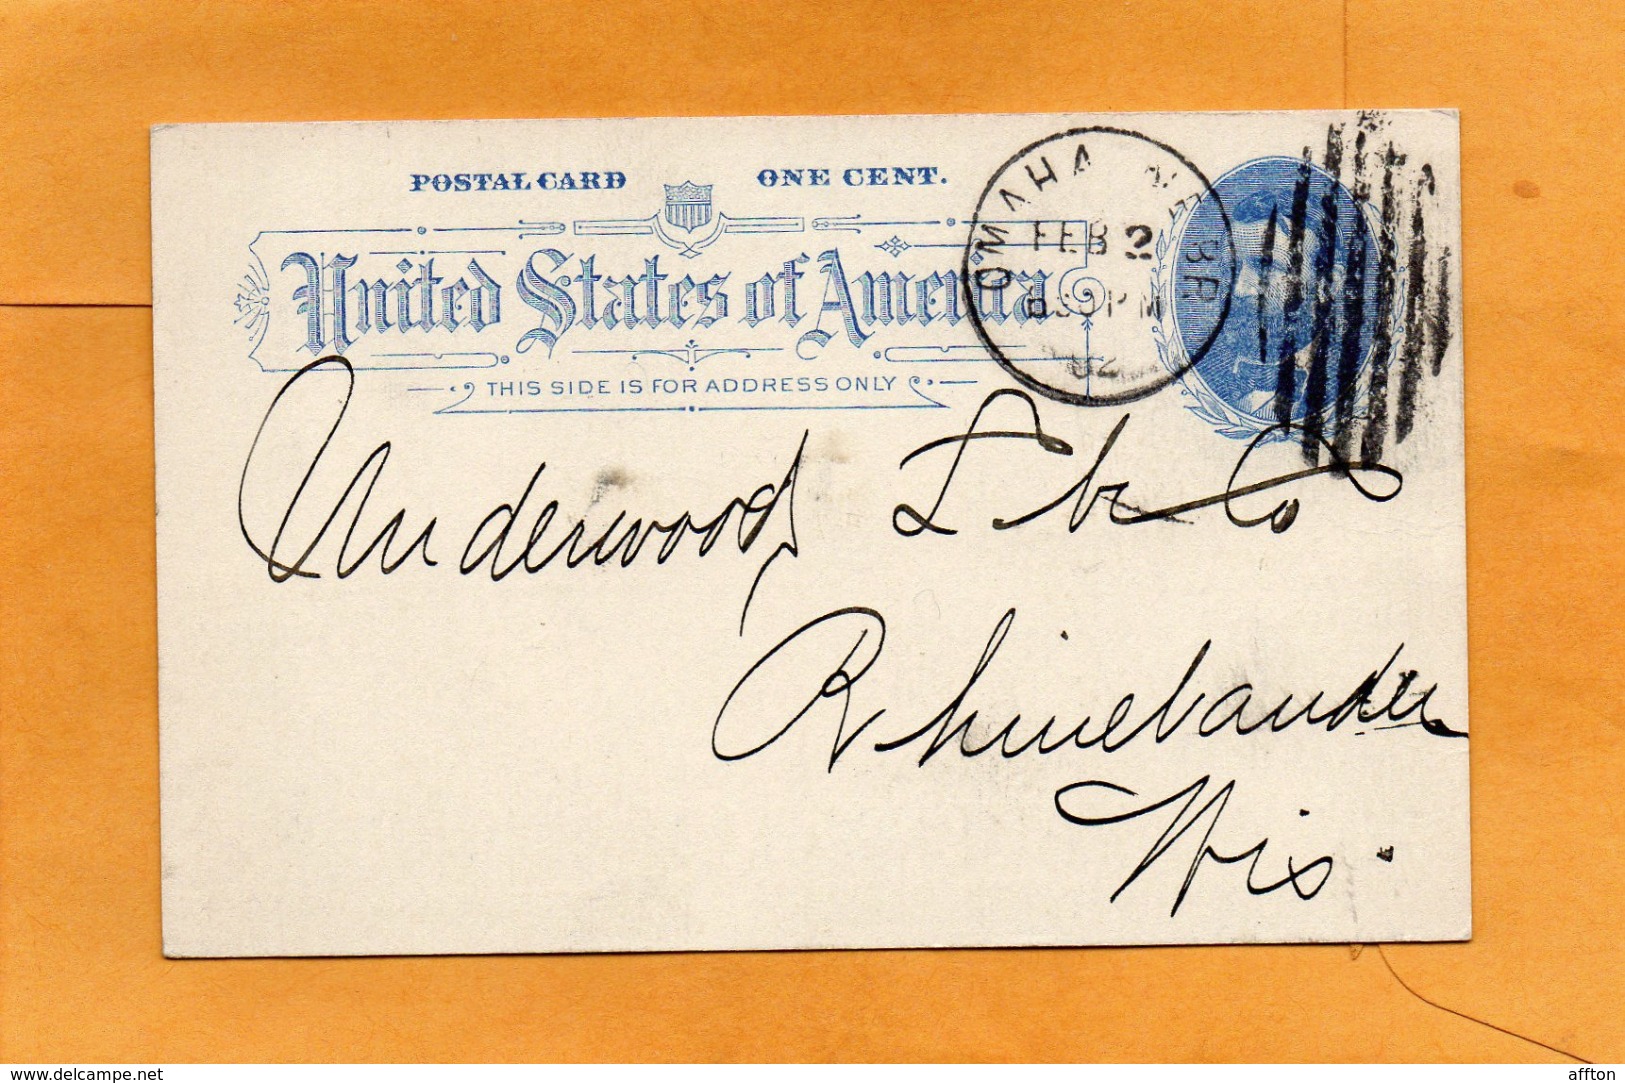 POSTAL CARD ONE CENT.
United States of America
THIS SIDE IS FOR ADDRESS ONLY
OMAHA NEBR
FEB 2
830 PM
92
Underwood L br Co
Rhinelander
Wis.
www.delcampe.net
affton